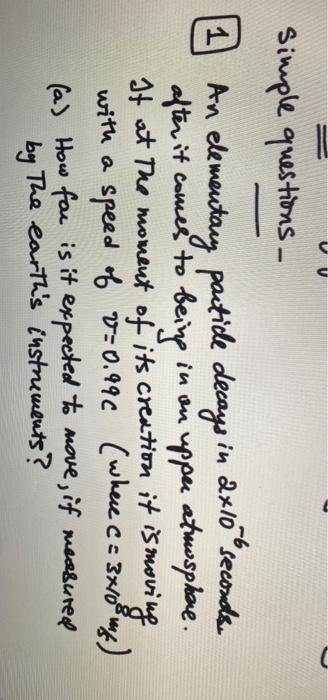 Simple questions -
1 An elementary particle decays in 2×10⁻⁶ seconds
after it comes to being in an upper atmosphere.
If at The moment of its creation it is moving
with a speed of v=0.99c (where c = 3×10⁸ m/s)
(a) How far is it expected to move, if measured
by The earth's instruments?